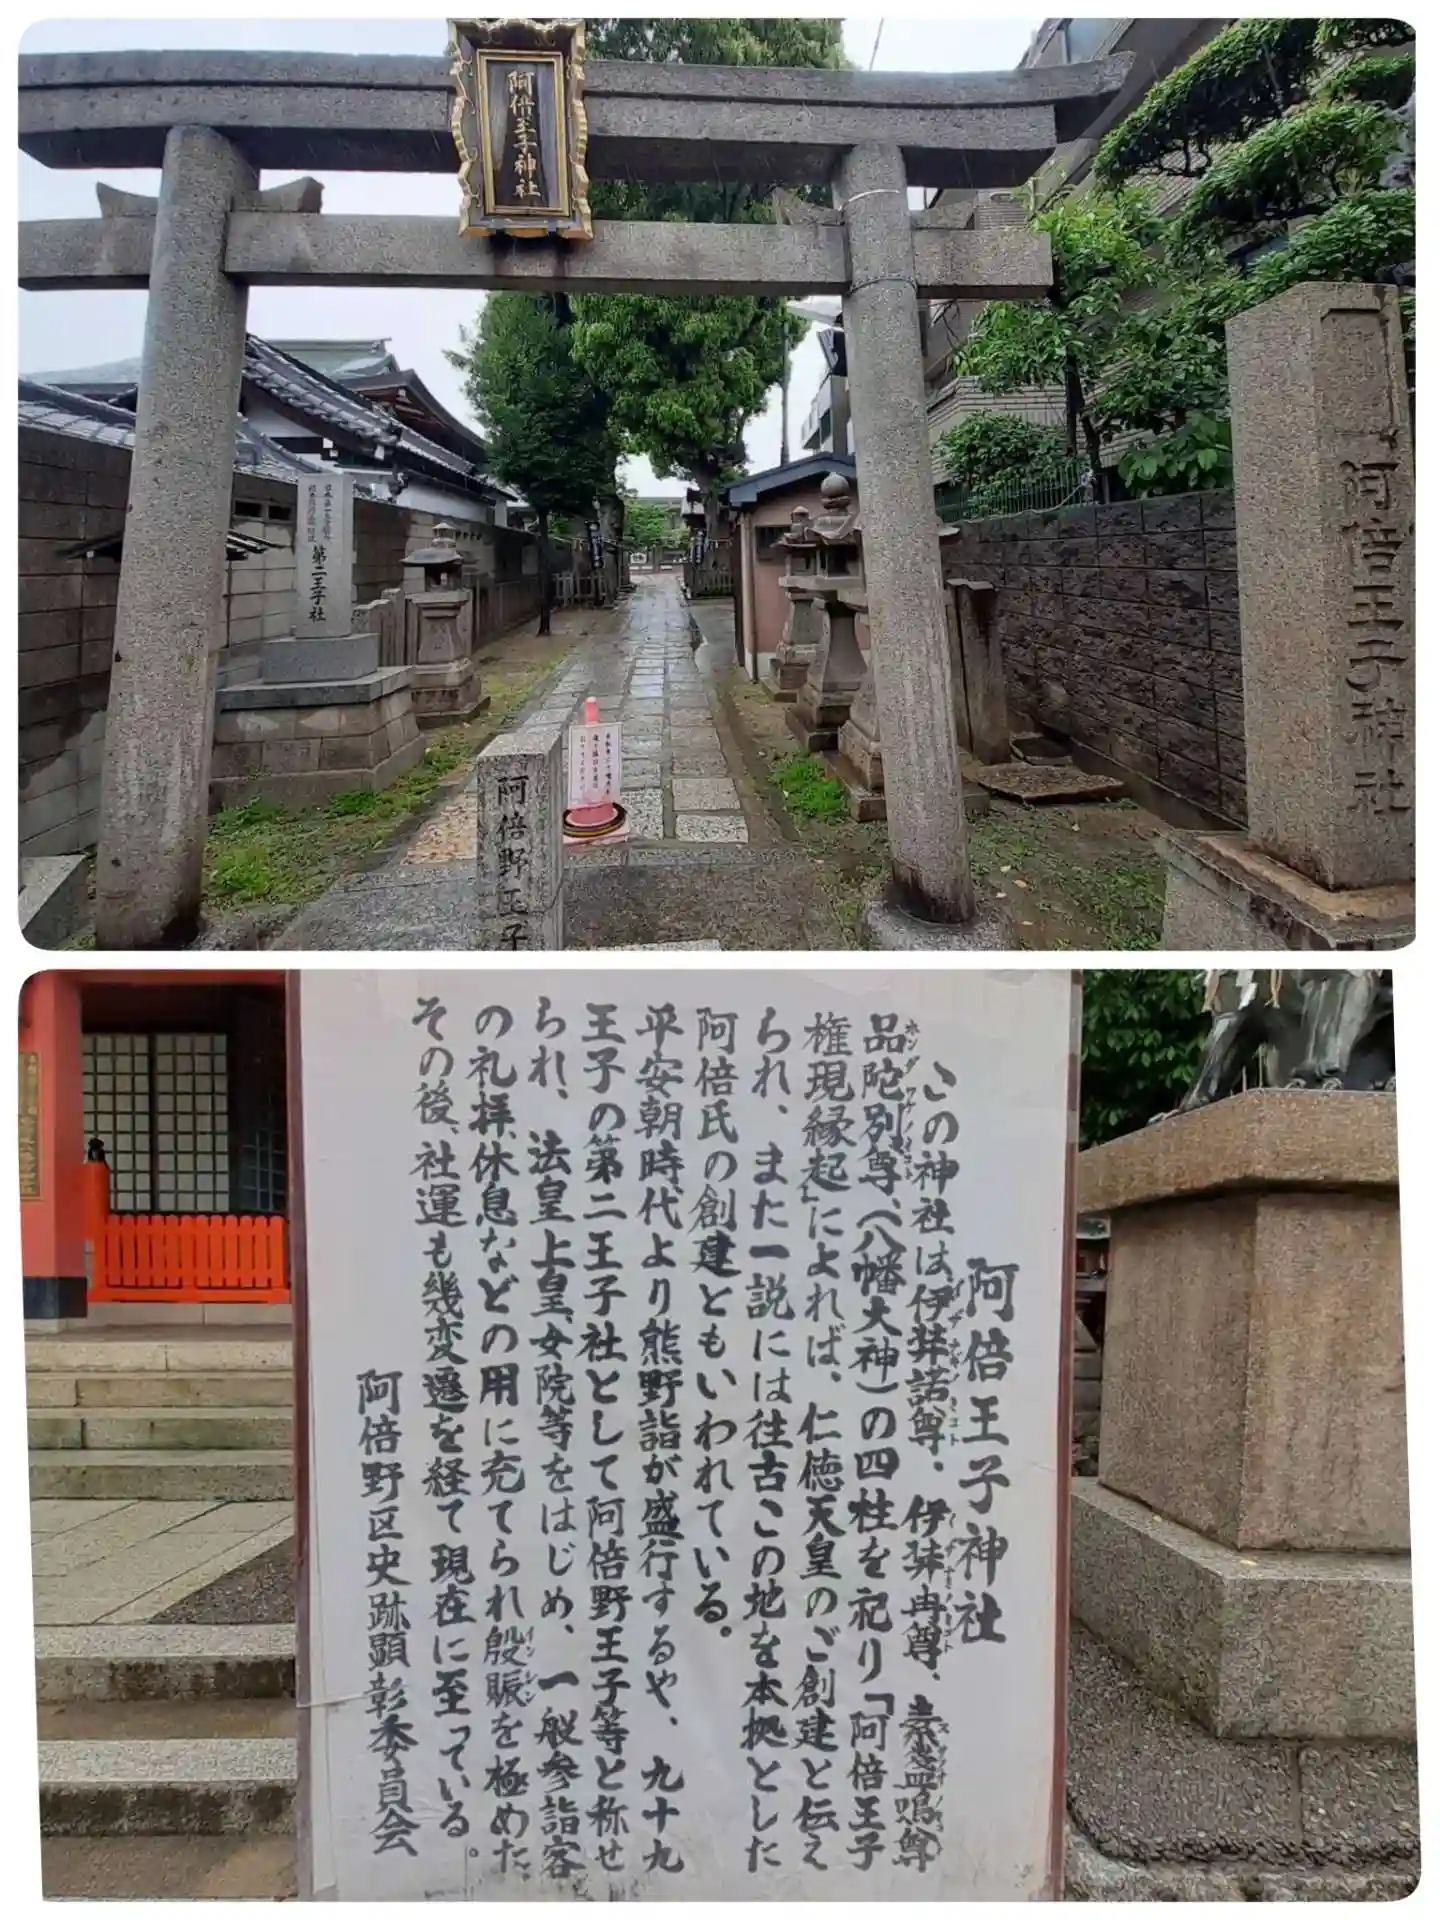 阿倍王子神社
第二王子社
阿倍野王子
阿倍王子神社
阿倍王子神社
この神社は、伊弉諾尊、伊弉冉尊、素盞嗚尊
品陀別尊、(八幡大神)の四柱を祀り「阿倍王子
権現縁起」によれば、仁徳天皇のご創建と伝え
られ、また一説には往古この地を本拠とした
阿倍氏の創建ともいわれている。
平安朝時代より熊野詣が盛行するや、九十九
王子の第二王子社として阿倍野王子等と称せ
られ、法皇上皇、女院等をはじめ、一般参詣客
の礼拝、休息などの用に充てられ殷賑を極めた。
その後、社運も幾変遷を経て現在に至っている。
阿倍野区史跡顕彰委員会